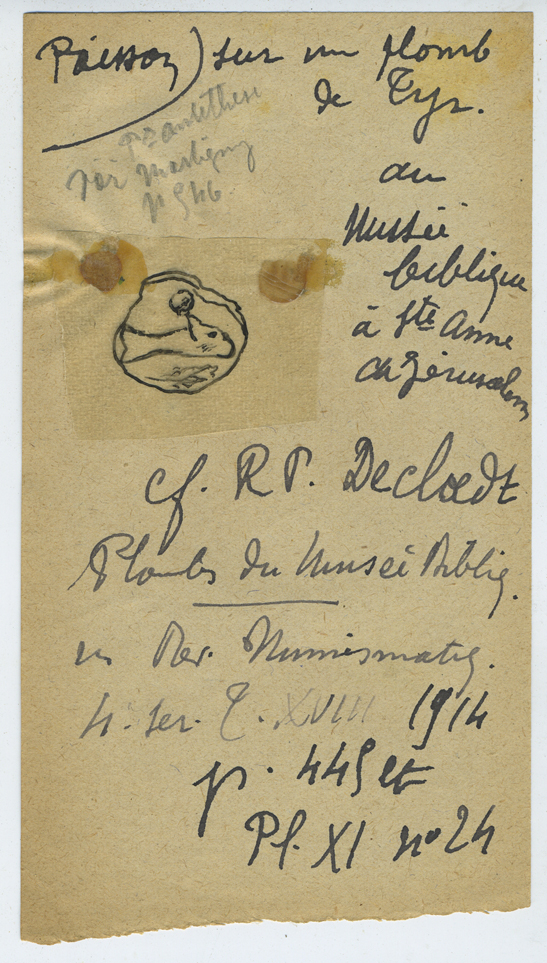 Poisson) sur un plomb
de Tyr.
antithèse
Voir Martigny
p 546
au
Musée
biblique
à Ste Anne
de Jérusalem
cf. R P. Decloedt
Plombs du Musée Bibliq.
in Rev. Numismatiq.
4. ser. T. XVIII 1914
p. 445 et
Pl. XI no 24